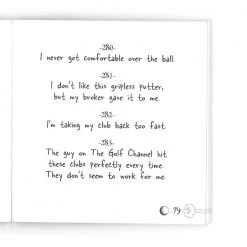 -280-
I never got comfortable over the ball.
-281-
I don't like this gripless putter,
but my broker gave it to me.
-282-
I'm taking my club back too fast.
-283-
The guy on The Golf Channel hit
these clubs perfectly every time.
They don't seem to work for me.
79